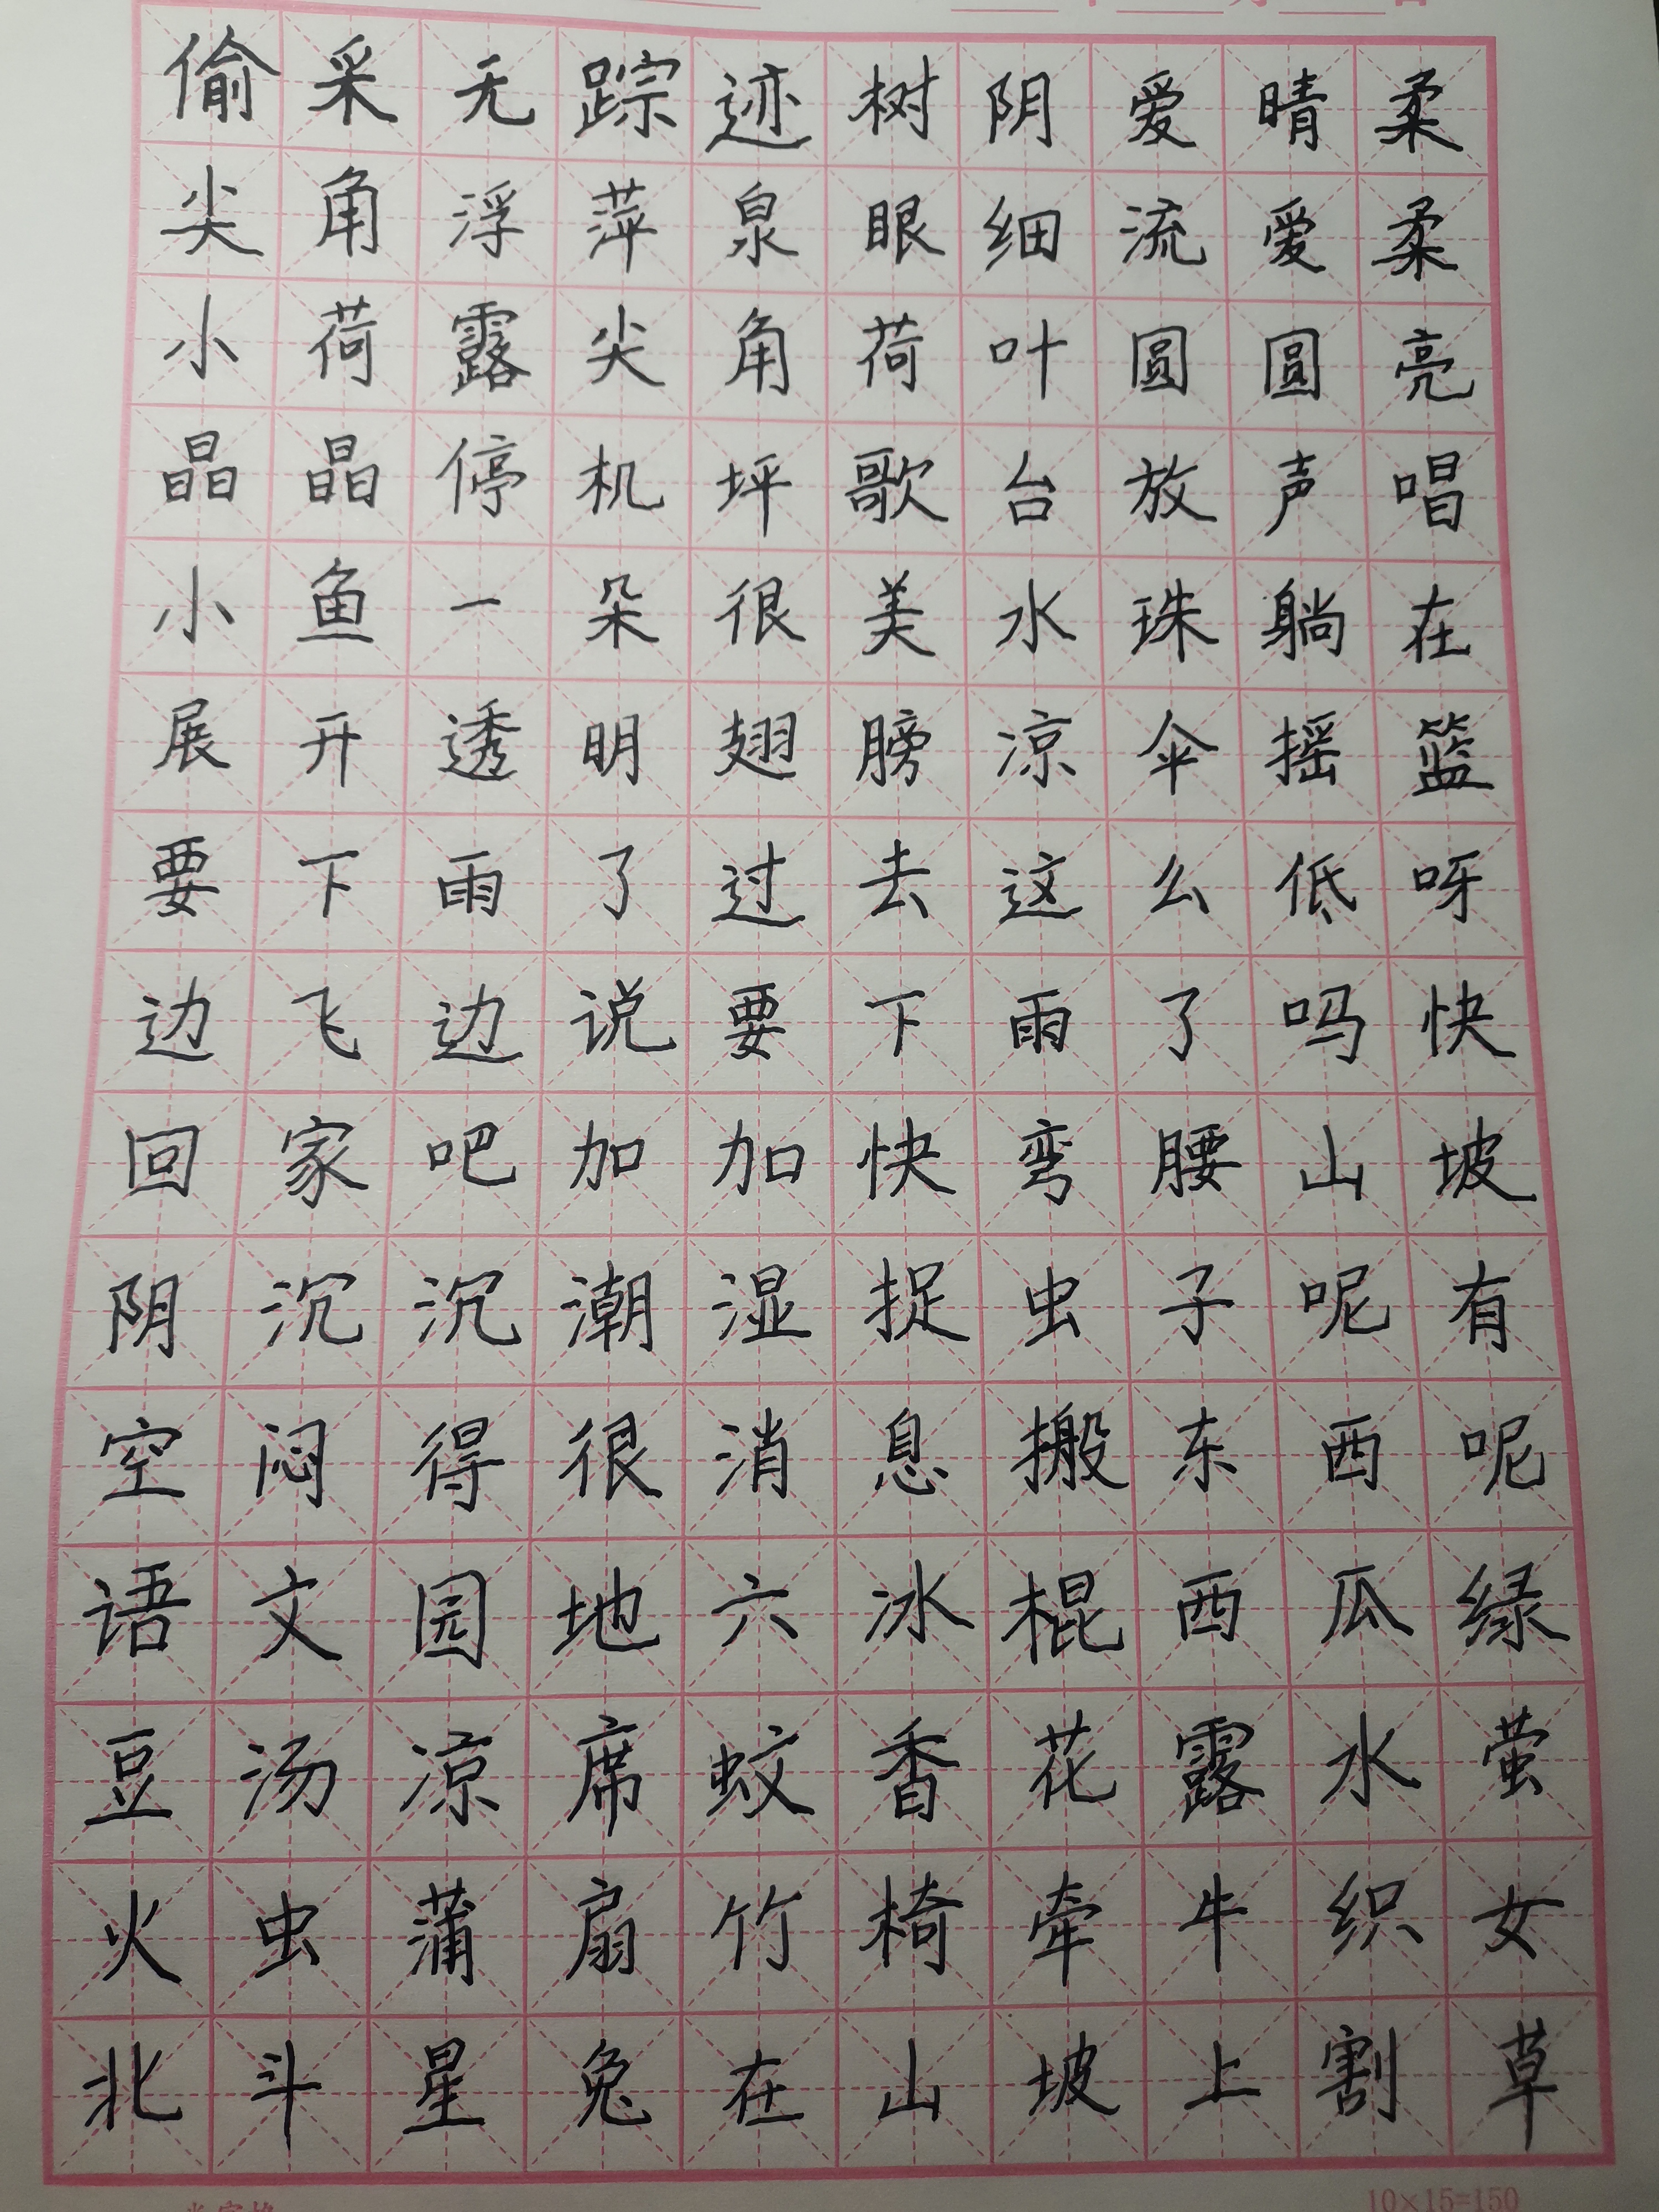 偷采无踪迹树阴爱晴柔
尖角浮萍泉眼细流爱柔
小荷露尖角荷叶圆圆亮
晶晶停机坪歌台放声唱
小鱼一朵很美水珠躺在
展开透明翅膀凉伞摇篮
要下雨了过去这么低呀
边飞边说要下雨了吗快
回家吧加加快弯腰山坡
阴沉沉潮湿捉虫子呢有
空闷得很消息搬东西呢
语文园地六冰棍西瓜绿
豆汤凉席蚊香花露水萤
火虫蒲扇竹椅牵牛织女
北斗星兔在山坡上割草
10×15=150